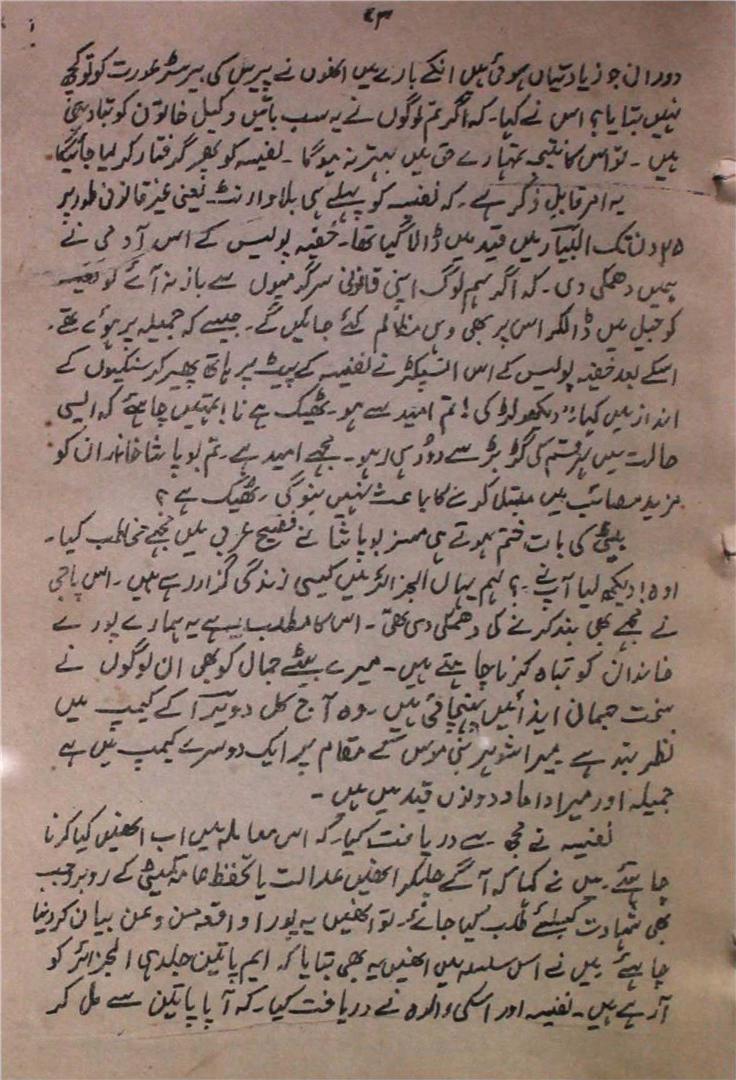 ۶۳
دوران جو زیادتیاں ہوئی ہیں انکے بارے میں انھوں نے پیرس کی بیرسٹر عورت کو تو کچھ
نہیں بتایا؟ اس نے کہا۔ کہ اگر تم لوگوں نے یہ سب باتیں وکیل خاتون کو بتا دینی
ہیں۔ تو اس کا نتیجہ تمہارے حق میں بہتر نہ ہوگا۔ نفیسہ کو پھر گرفتار کر لیا جائیگا
یہ امر قابلِ ذکر ہے۔ کہ نفیسہ کو پہلے ہی بلا وارنٹ۔ یعنی غیر قانونی طور پر
۲۵ دن تک البیار میں قید میں ڈالا گیا تھا۔ خفیہ پولیس کے اس آدمی نے
ہمیں دھمکی دی۔ کہ اگر ہم لوگ اپنی قانونی سرگرمیوں سے باز نہ آئے تو نفیسہ
کو جیل میں ڈالکر اس پر بھی وہی مظالم کئے جائیں گے۔ جیسے کہ جمیلہ پر ہوئے تھے۔
اسکے بعد خفیہ پولیس کے اس انسپکٹر نے نفیسہ کے پیٹ پر ہاتھ پھیر کر سنکیوں کے
انداز میں کہا: "دیکھو لڑکی! تم امید سے ہو۔ ٹھیک ہے نا! تمہیں چاہئے کہ ایسی
حالت میں ہر قسم کی گڑ بڑ سے دور ہی رہو۔ مجھے امید ہے۔ تم بوپاشا خاندان کو
مزید مصائب میں مبتلا کرنے کا باعث نہیں بنو گی۔ ٹھیک ہے؟
بیٹی کی بات ختم ہوتے ہی مسز بوپاشا نے فصیح عربی میں مجھے مخاطب کیا۔
اوہ! دیکھ لیا آپ نے؟ ہم یہاں الجزائر میں کیسی زندگی گزار رہے ہیں۔ اس پاجی
نے مجھے بھی بند کرنے کی دھمکی دی تھی۔ اس کا مطلب ہے یہ ہمارے پورے
خاندان کو تباہ کرنا چاہتے ہیں۔ میرے بیٹے جمال کو بھی ان لوگوں نے
سخت جسمانی ایذائیں پہنچائی ہیں۔ وہ آج کل دویرا کے کیمپ میں
نظر بند ہے میرا شوہر بنی موس کے مقام پر ایک دوسرے کیمپ میں ہے
جمیلہ اور میرا داماد دونوں قید میں ہیں۔
نفیسہ نے مجھ سے دریافت کیا۔ کہ اس معاملہ میں اب انھیں کیا کرنا
چاہئے۔ میں نے کہا کہ آگے چلکر انھیں عدالت یا تحفظ عامہ کمیٹی کے روبرو جب
بھی شہادت کیلئے طلب کیا جائے۔ تو انھیں یہ پورا واقعہ من و عن بیان کر دینا
چاہئے میں نے اس سلسلہ میں انھیں یہ بھی بتایا کہ ایم پاتین جلد ہی الجزائر کو
آ رہے ہیں۔ نفیسہ اور اسکی والدہ نے دریافت کیا۔ کہ آیا پاتین سے مل کر